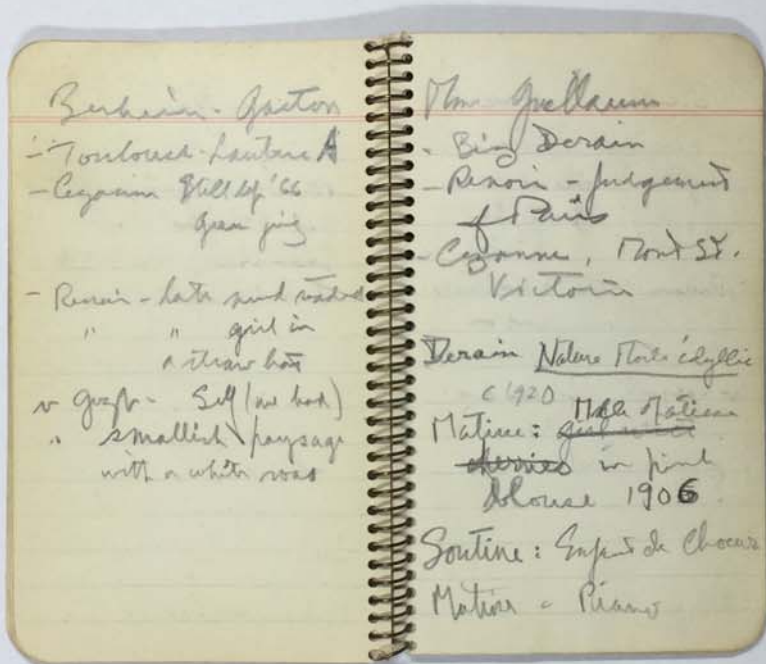 Bernheim - Gaston
- Toulouse-Lautrec A
- Cezanne Still life '66
green jug
- Renoir - late nude
" " girl in
a straw hat
v Gogh - Self (no hat)
" smallish paysage
with a white road
Mme Guillaume
- Big Derain
- Renoir - Judgement
of Paris
- Cezanne, Mont St.
Victoire
Derain Nature Morte idyllic
c 1920
Matisse: Mlle Matisse
girl with
cherries in pink
blouse 1906
Soutine: Enfant de Choeur
Matisse - Piano